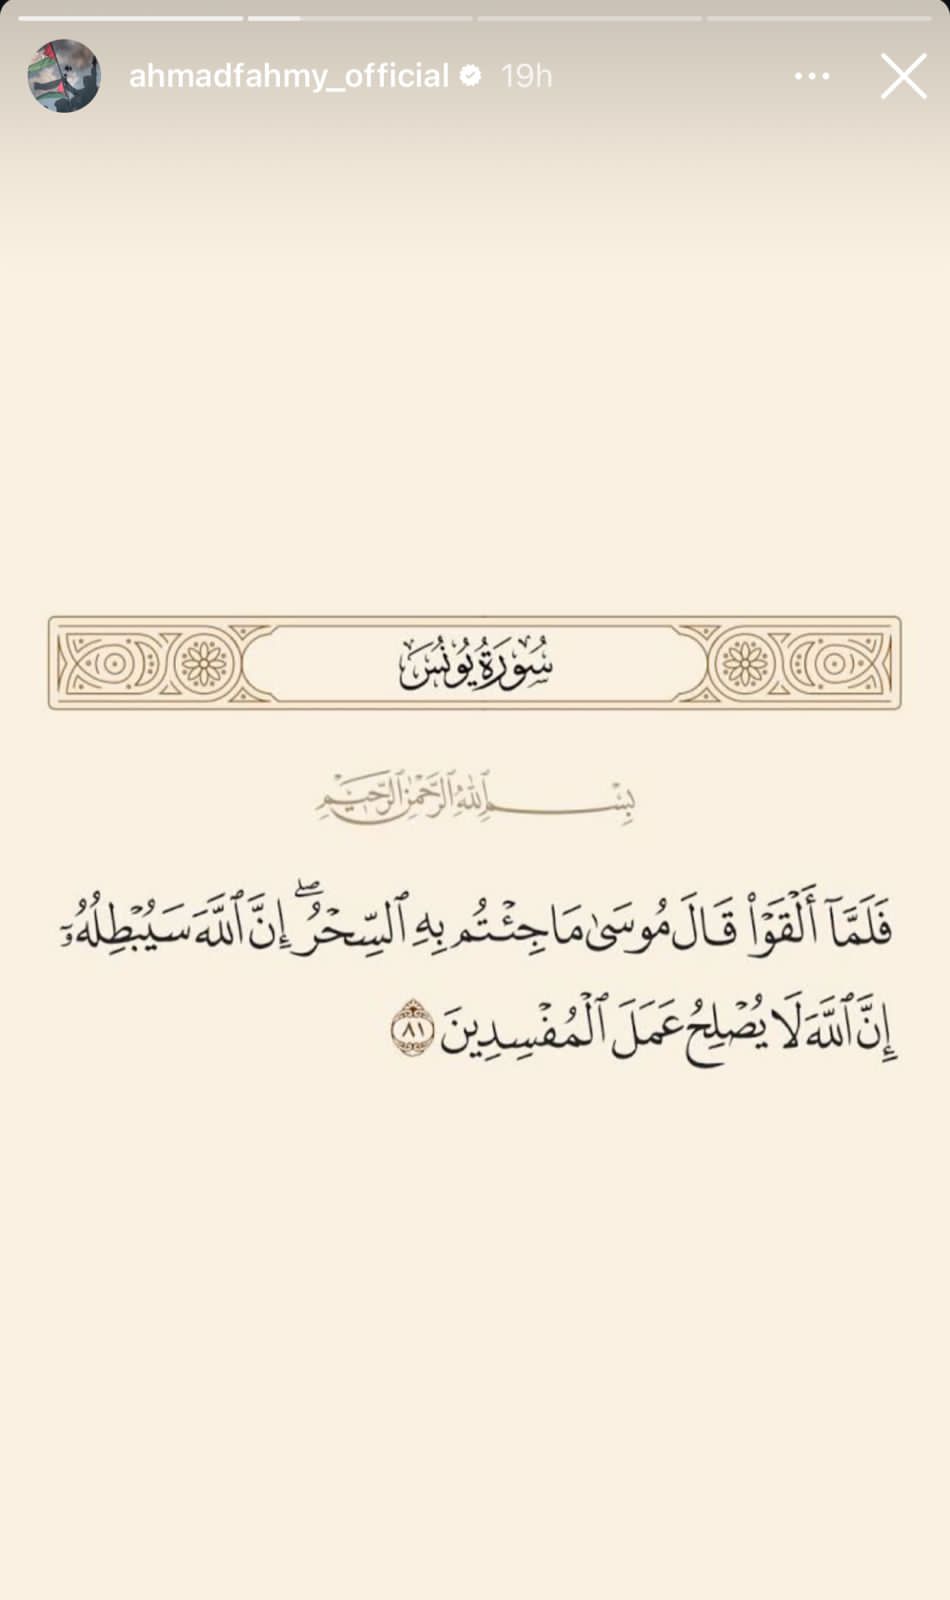 ahmadfahmy_official 19h
سُورَةُ يُونُسَ
بِسْمِ ٱللَّهِ ٱلرَّحْمَٰنِ ٱلرَّحِيمِ
فَلَمَّآ أَلْقَوْا۟ قَالَ مُوسَىٰ مَا جِئْتُم بِهِ ٱلسِّحْرُ ۖ إِنَّ ٱللَّهَ سَيُبْطِلُهُۥٓ
إِنَّ ٱللَّهَ لَا يُصْلِحُ عَمَلَ ٱلْمُفْسِدِينَ ٨١